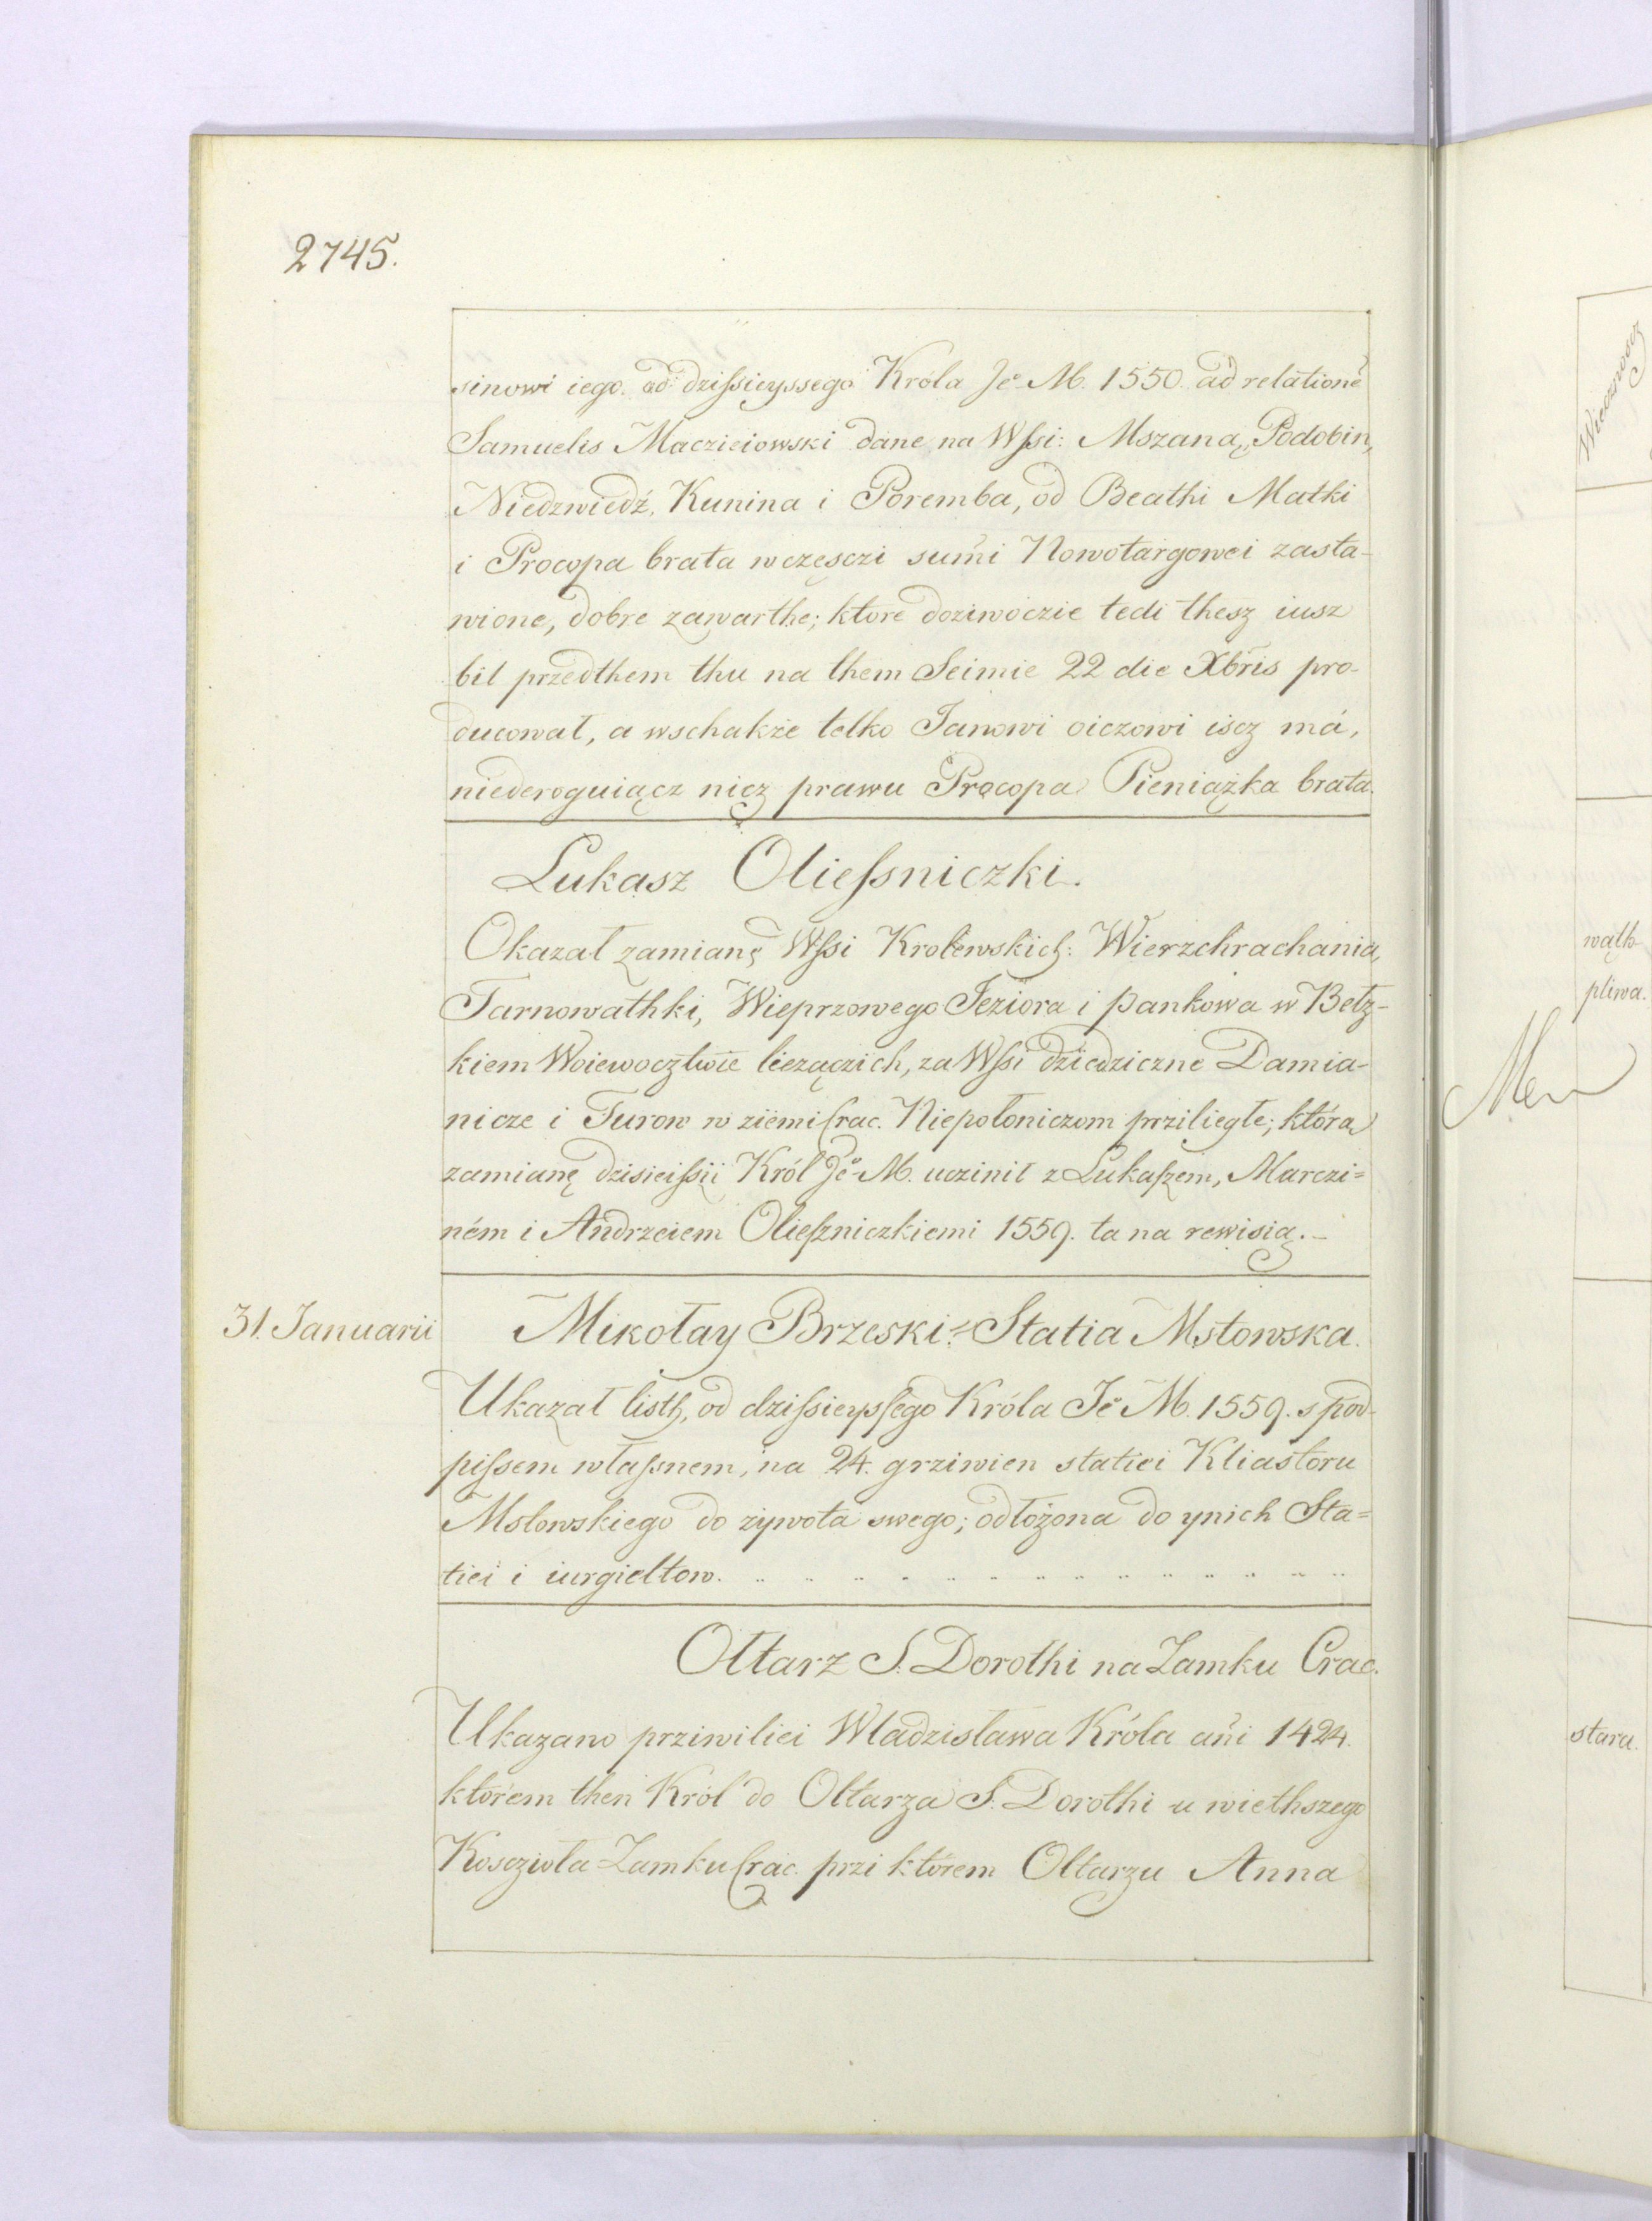 2745.
sinowi iego. od dzißieyssego Króla Je M. 1550. ad relatione
Samuelis Macziciowski dane na Wßi: Mszana, Podobin,
Niedzwiedź, Kunina i Poremba, od Beathi Matki
i Procopa brata wczęsczi sumi Nowotargowei zasta-
wione, dobre zawarthe; ktore doziwoczie tedi thesz iusz
bil przedthem thu na them Seimie 22 die Xbris pro-
ducował, a wschakże telko Janowi oiczowi iscz má,
niederoguiącz nicz prawu Procopa Pieniążka brata.
Lukasz Oließniczki.
Okazał zamianę Wßi Krolewskich: Wierzchrachania,
Tarnowathki, Wieprzowego Jeziora i Pankowa w Bełz-
kiem Woiewocztwie lieżączich, za Wßi dziedziczne Damia-
nicze i Turow w ziemi Crac. Niepołoniczom prziliegłe; która
zamianę dzisieißii Król Je M. uczinił z Lukaßem, Marczi=
ném i Andrzeiem Oließniczkiemi 1559. ta na rewisią.-
31. Januarii
Mikołay Brzeski: Statia Mstowska.
Ukazał listh, od dzißieyßego Króla Je M. 1559. s pod-
pißem własnem, na 24. grziwien statiei Kliastoru
Mstowskiego do żywota swego; odłożona do ynich Sta=
tiei i iurgieltow.
Ołtarz S. Dorothi na Zamku Crac.
Ukazano prziwiliei Wladzisława Króla ani 1424.
ktorem then Król do Ołtarza S. Dorothi u wiethszego
Kosczioła Zamku Crac. przi którem Ołtarzu Anna
wąth-
pliwa.
stara.